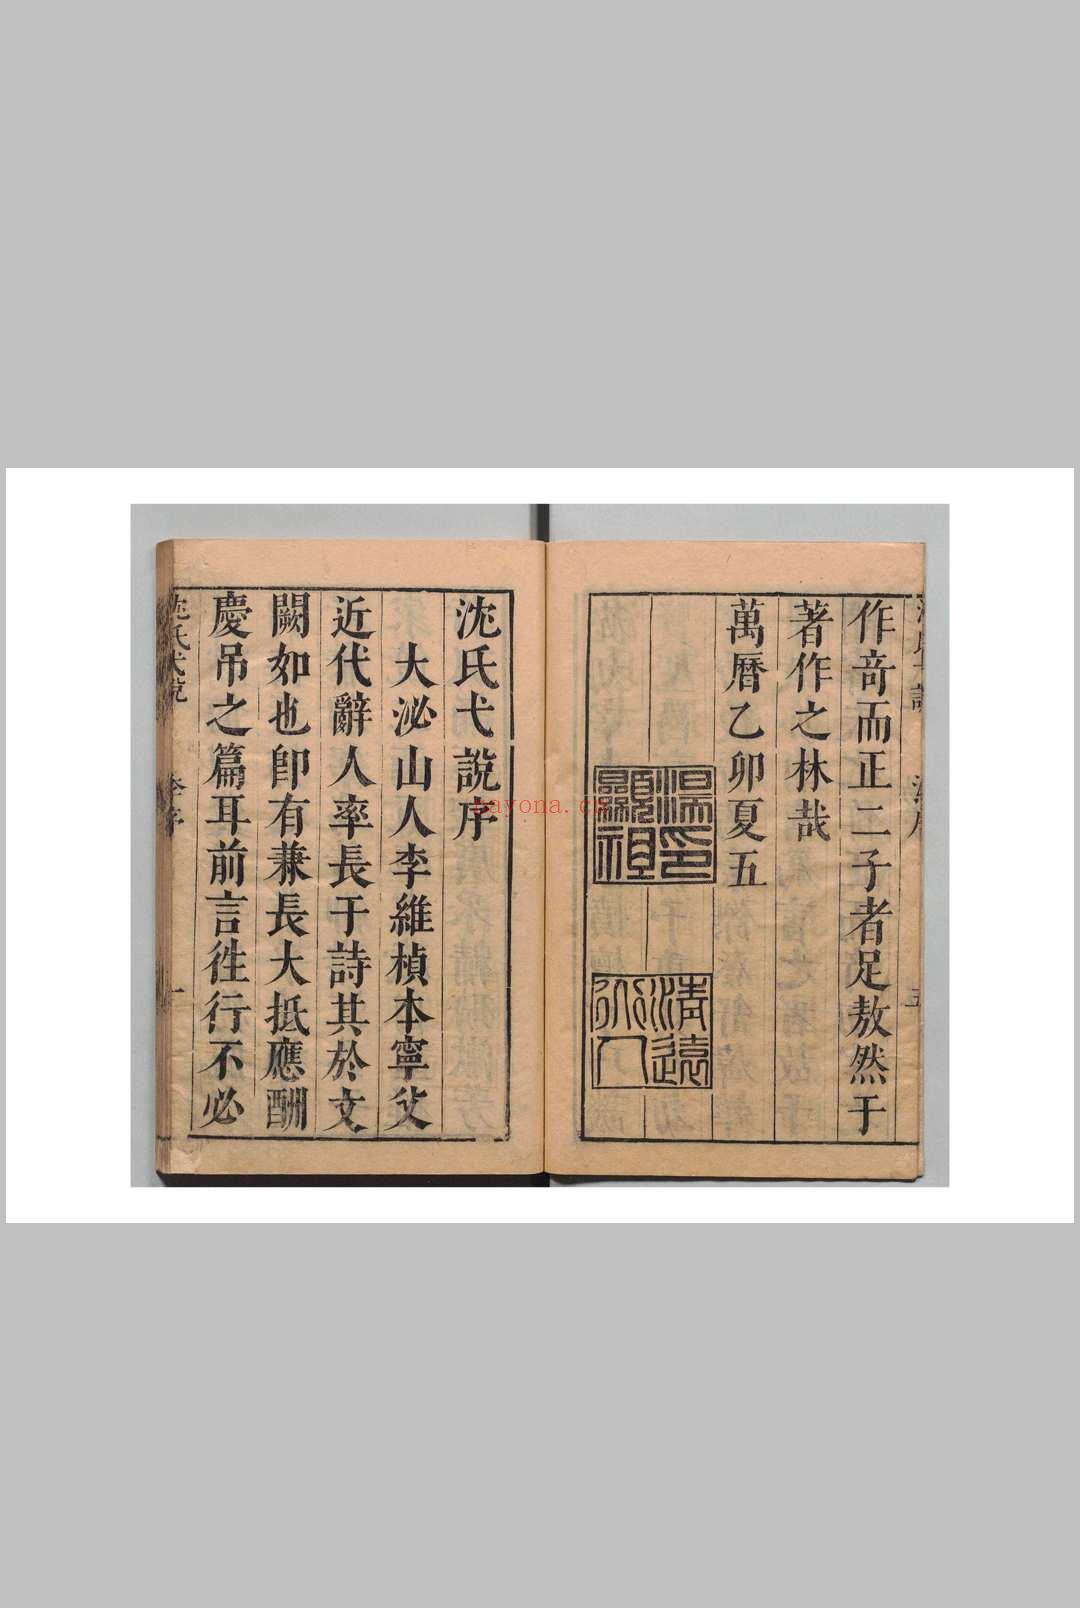 作竒而正二子者足敖然于
著作之林哉
萬曆乙卯夏五
湯顯祖印
清遠道人
沈氏弋說序
大泌山人李維楨本寧父
近代辭人率長于詩其於文
闕如也即有兼長大抵應酬
慶吊之篇耳前言徃行不必
沈氏弋說
李序
一
nayona.cn